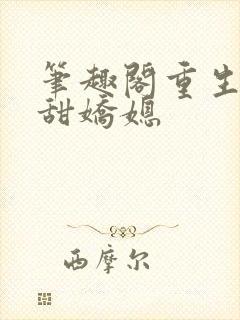 筆趣閣重生
甜嬌媳
西摩尔